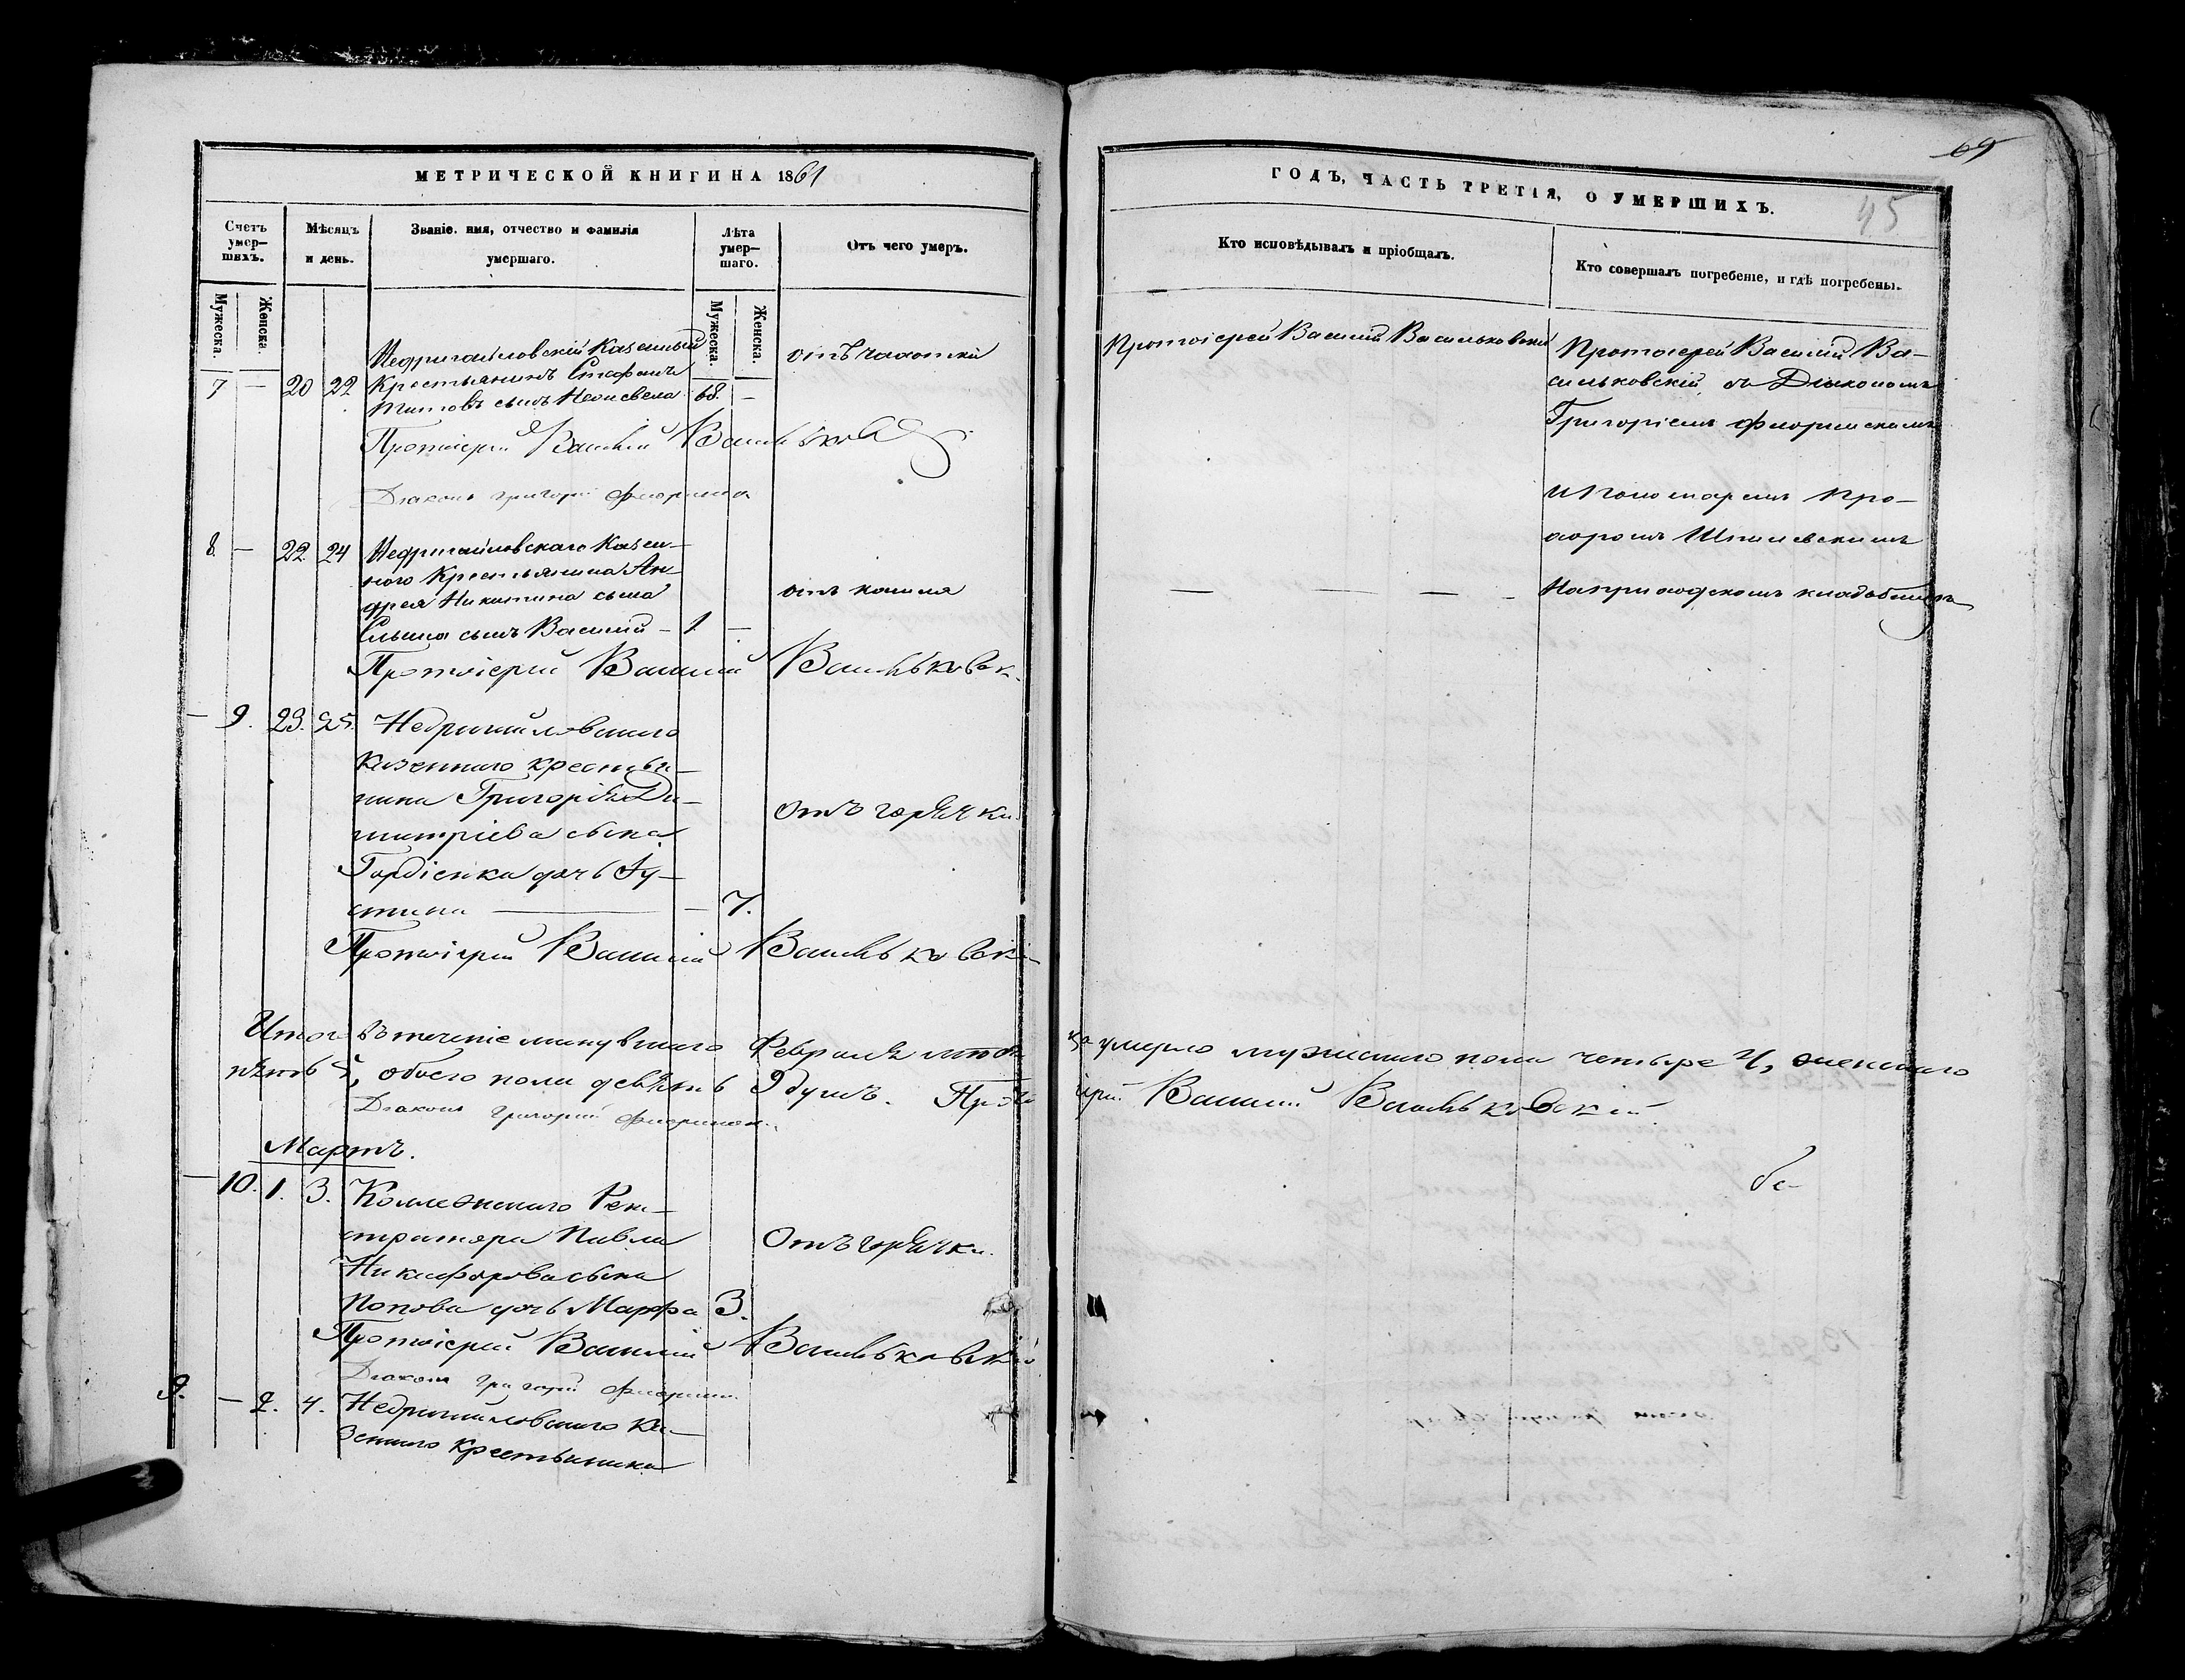 МЕТРИЧЕСКОЙ КНИГИ НА 1861
Счетъ умер-шихъ.
Мѣсяцъ и день.
Званіе. имя, отчество и фамилія умершаго.
Лѣта умер-шаго.
Отъ чего умеръ.
Мужеска. Женска.
Мужеска. Женска.
Недригайловскій Казенный отъ чахотки
7 — 20 22 Крестьянинъ Стефанъ
Титовъ сынъ 68. —
Протоіерей Василій Васильковс
Діаконъ Григорій
8. — 22 24 Недригайловскаго Казен-
наго Крестьянина Ан-
дрея Никитина сына отъ кашля
сынъ Василій — 1 —
Протоіерей Василій Васильковск.
— 9. 23. 25. Недригайловскаго
казеннаго крестья-
нина Григорія Ди- отъ горячки.
митріева сына
Гордіенка дочь Іу-
стина — — 7.
Протоіерей Василій Васильковскі
Итого въ теченіе минувшаго Февраля мѣся
пять 5, обоего пола девять 9 душъ. Прото
Діаконъ Григорій
Мартъ.
— 10. 1. 3. Коллежскаго Реги-
стратора Павла Отъ горячки.
Никифорова сына
Попова дочь Марфа 3.
Протоіерей Василій Васильковскій
Діаконъ Григорій
9. — 2. 4. Недригайловскаго ка-
зеннаго крестьянина
69
ГОДЪ, ЧАСТЬ ТРЕТІЯ, О УМЕРШИХЪ.
45
Кто исповѣдывалъ и пріобщалъ.
Кто совершалъ погребеніе, и гдѣ погребены.
Протоіерей Василій Васильковскій
Протоіерей Василій Ва-
сильковскій съ Діакономъ
Григоріемъ
и Пономаремъ Про-
хоромъ
— — — - На приходскомъ кладбищѣ
ца умерло мужескаго пола четыре 4, женскаго
іерей Василій Васильковскій